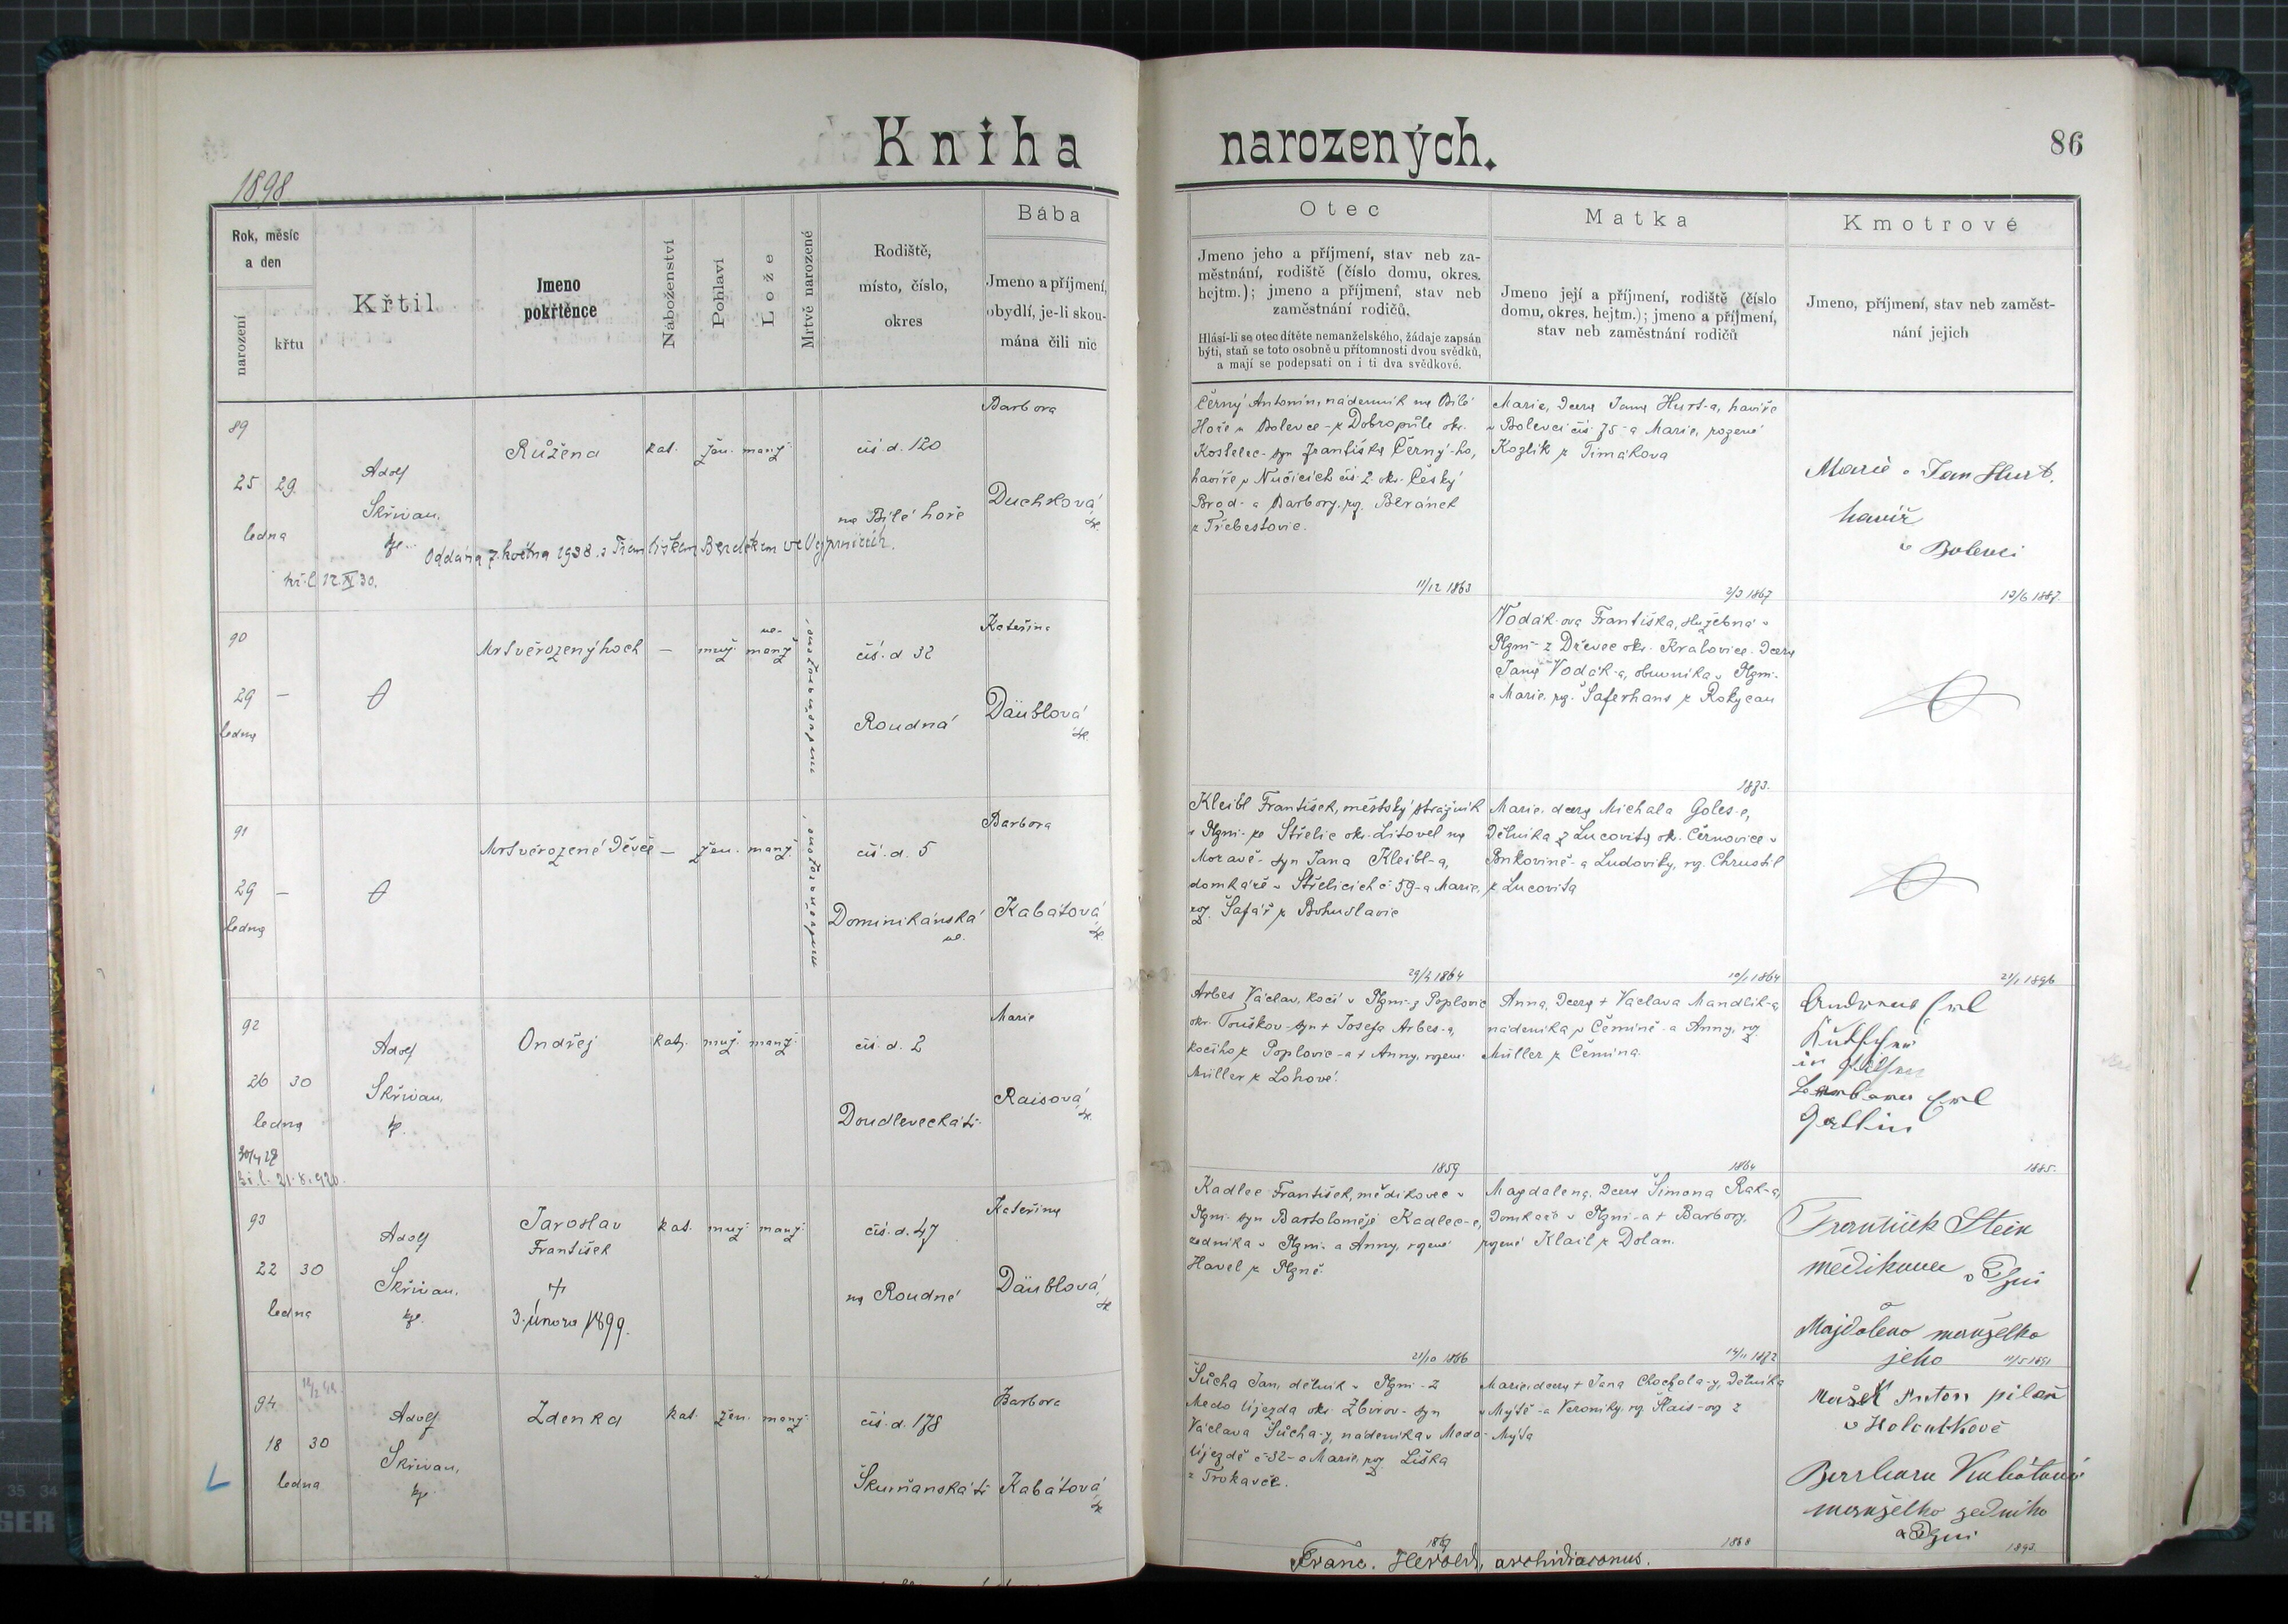 Kniha narozených.
86
1898
Rok, měsíc
a den
narození
křtu
Křtil
Jmeno
pokřtěnce
Náboženství
Pohlaví
Lože
Mrtvě narozené
Rodiště,
místo, číslo,
okres
Bába
Jmeno a příjmení,
obydlí, je-li skou-
mána čili nic
Otec
Jmeno jeho a příjmení, stav neb za-
městnání, rodiště (číslo domu, okres.
hejtm.); jmeno a příjmení, stav neb
zaměstnání rodičů.
Hlásí-li se otec dítěte nemanželského, žádaje zapsán
býti, staň se toto osobně u přítomnosti dvou svědků,
a mají se podepsati on i ti dva svědkové.
Matka
Jmeno její a příjmení, rodiště (číslo
domu, okres. hejtm.); jmeno a příjmení,
stav neb zaměstnání rodičů
Kmotrové
Jmeno, příjmení, stav neb zaměst-
nání jejich
89
25 29
ledna
Adolf
Skřivan,
kpl.
Růžena
kat. žen. manž.
čís. d. 120
na Bílé hoře
Barbora
Duchková
Oddána 7. května 1938 s Františkem
12. IV 30.
Černý Antonín, nádenník na Bílé
Hoře u Bolevce - z Dobropůle okr.
Kostelec - syn Františka Černý-ho,
havíře v Nučicích čís. 2. okr. Český
Brod - a Barbory, roz. Beránek
z Třebestovic.
11/12 1863
Marie, dcera Jana Hurt-a, havíře
v Bolevci čís. 75 - a Marie, rozené
Kozlík z Timákova
2/3 1867
Marie a Jan Hurt,
havíř
v Bolevci
13/6 1887.
90
29 —
ledna
Mrtvěrozený hoch
— muž. ne-
manž.
čís. d. 32
Roudná
Kateřina
Däublová
Vodák-ova Františka, služebná v
Plzni - z Dřevec okr. Kralovice - dcera
Jana Vodák-a, obuvníka v Plzni -
a Marie, roz. Šaferhans z Rokycan
1873.
91
29 —
ledna
Mrtvěrozené děvče
— žen. manž.
čís. d. 5
Dominikánská
ul.
Barbora
Kabátová
Kleibl František, městský strážník
v Plzni - ze Střelic okr. Litovel na
Moravě - syn Jana Kleibl-a,
domkáře v Střelicích č 59 - a Marie,
roz. Šafář z Bohuslavic
29/3 1864
Marie, dcera Michala Goles-e,
dělníka z Lucovita ok. Černovice v
Bukovině - a Ludoviky, roz. Chrustil
z Lucovita
10/1 1864
21/1 1896
92
26 30
ledna
Adolf
Skřivan,
kp.
Ondřej
kat. muž. manž.
čís. d. 2
Doudlevecká tř.
Marie
Raisová
21. 8. 1920.
Arbes Václav, kočí v Plzni - z Poplovic
okr. Touškov - syn + Josefa Arbes-a,
kočího z Poplovic - a + Anny, rozené
Müller z Lohové.
1859
Anna, dcera + Václava Mandlík-a,
nádeníka v Čemině - a Anny, roz.
Müller z Čemina.
1864
1885.
93
22 30
ledna
Adolf
Skřivan,
kpl.
Jaroslav
František
+
3. února 1899.
kat. muž. manž.
čís. d. 47
na Roudné
Kateřina
Däublová
Kadlec František, mědikovec v
Plzni - syn Bartoloměje Kadlec-e,
zedníka v Plzni - a Anny, rozené
Havel z Plzně.
21/10 1866
Magdalena, dcera Šimona Rak-a,
domkáře v Plzni - a + Barbory,
rozené Klail z Dolan.
14/11 1872
František Stein
mědikovec v Plzni
a
Majdalena manželka
jeho
11/5 1891
94
18 30
ledna
Adolf
Skřivan,
kp.
Zdenka
kat. žen. manž.
čís. d. 178
Škurňanská tř.
Barbora
Kabátová
Šůcha Jan, dělník v Plzni - z
Medo Újezda okr. Zbirov - syn
Václava Šůcha-y, nádeníka v Medo
Újezdě č 32 - a Marie, roz. Liška
z Trokavče.
1867
Marie, dcera + Jana Chochola-y, dělníka
v Mýtě - a Veroniky, roz.
Mýta
1868
Mašek Anton pilař
v Holoubkově
Barbara Kabátová
manželka zedníka
v Plzni
1893.
Franc. Herold, archidiaconus.